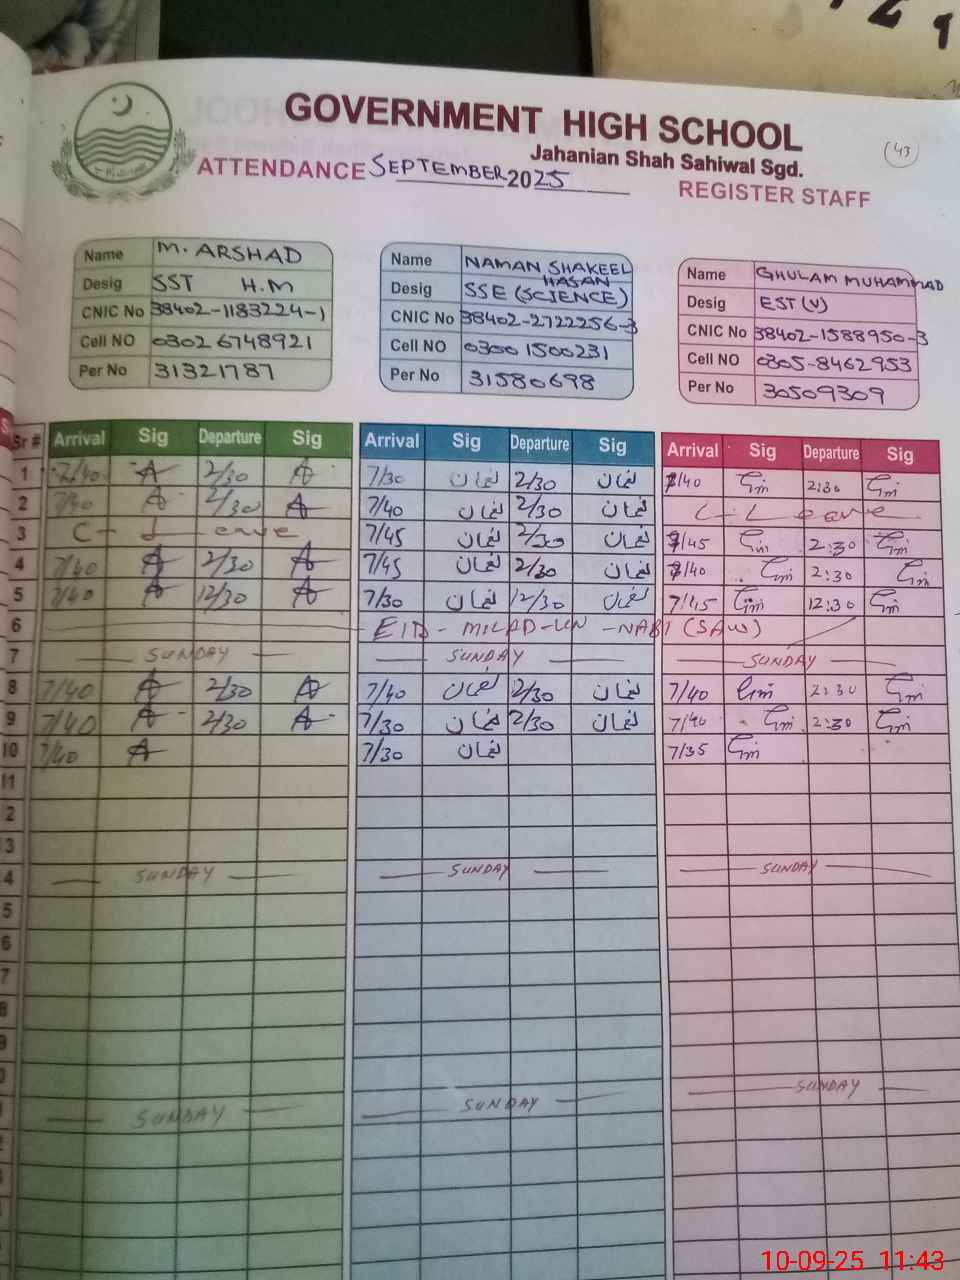 GOVERNMENT HIGH SCHOOL
Jahanian Shah Sahiwal Sgd.
(43)
ATTENDANCE SEPTEMBER 2025
REGISTER STAFF
Name M. ARSHAD
Desig SST H.M
CNIC No 38402-1183224-1
Cell NO 03026748921
Per No 31321787
Name NAMAN SHAKEEL HASAN
Desig SSE (SCIENCE)
CNIC No 38402-2722256-3
Cell NO 03001500231
Per No 31580698
Name GHULAM MUHAMMAD
Desig EST (V)
CNIC No 38402-1588950-3
Cell NO 0305-8462953
Per No 30509309
Sr # Arrival Sig Departure Sig Arrival Sig Departure Sig Arrival Sig Departure Sig
1 7/40 A 2/30 A 7/30 نعمان 2/30 نعمان 7/40 Gm 2:30 Gm
2 7/40 A 2/30 A 7/40 نعمان 2/30 نعمان C-Leave
3 C-Leave 7/45 نعمان 2/30 نعمان 7/45 Gm 2:30 Gm
4 7/40 A 2/30 A 7/45 نعمان 2/30 نعمان 7/40 Gm 2:30 Gm
5 7/40 A 12/30 A 7/30 نعمان 12/30 نعمان 7/15 Gm 12:30 Gm
6 EID-MILAD-UN-NABI (SAW)
7 SUNDAY SUNDAY SUNDAY
8 7/40 A 2/30 A 7/40 نعمان 2/30 نعمان 7/40 Gm 2:30 Gm
9 7/40 A 2/30 A 7/30 نعمان 2/30 نعمان 7/40 Gm 2:30 Gm
10 7/40 A 7/30 نعمان 7/35 Gm
11
2
3
4 SUNDAY SUNDAY SUNDAY
5
6
7
8
9
0
SUNDAY SUNDAY SUNDAY
10-09-25 11:43